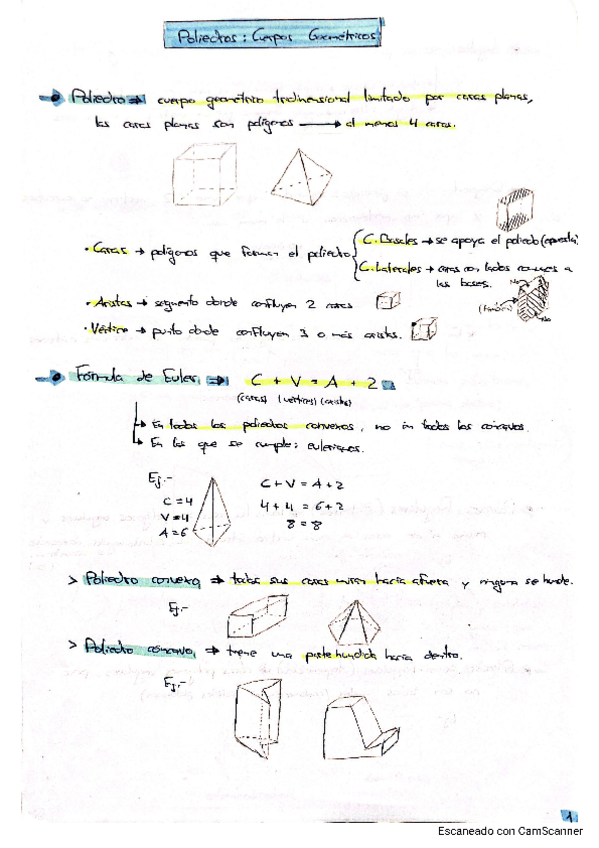 Poliedros: Cuerpos Geométricos
Poliedro → cuerpo geométrico tridimensional limitado por caras planas,
las caras planas son polígonos → al menos 4 caras.
C. Basales → se apoya el poliedro (opuesta)
• Caras → polígonos que forman el poliedro
C. Laterales → caras con lados comunes a
las bases.
No
• Aristas → segmento donde confluyen 2 caras
• Vértice → punto donde confluyen 3 o más aristas.
No
Fórmula de Euler → C + V = A + 2
(caras) (vértices) (aristas)
↳ En todos los poliedros convexos, no en todos los cóncavos.
↳ En los que se cumple: eulerianos.
Ej.-
C = 4
V = 4
A = 6
C + V = A + 2
4 + 4 = 6 + 2
8 = 8
> Poliedro convexo → todas sus caras miran hacia afuera y ninguna se hunde.
Ej.-
> Poliedro cóncavo → tiene una parte hundida hacia dentro.
Ej.-
1
Escaneado con CamScanner